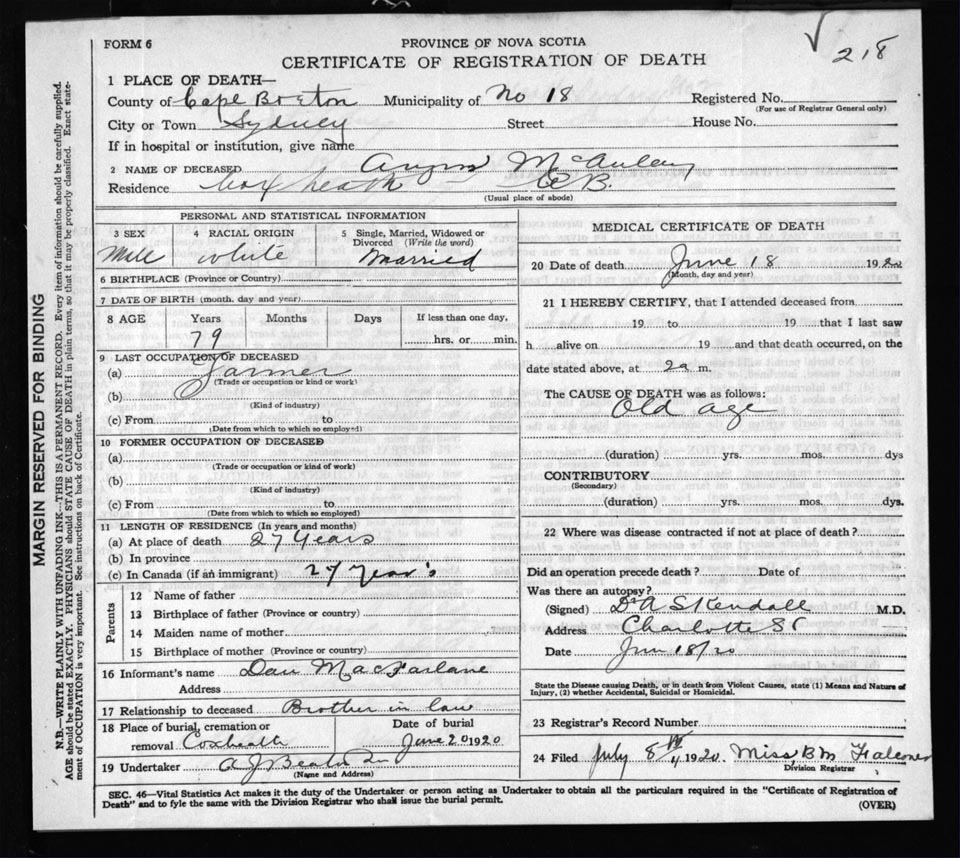 218
FORM 6
PROVINCE OF NOVA SCOTIA
CERTIFICATE OF REGISTRATION OF DEATH
1 PLACE OF DEATH—
County of Cape Breton Municipality of No 18 Registered No.
(For use of Registrar General only)
City or Town Sydney Street House No.
If in hospital or institution, give name
2 NAME OF DECEASED Angus McAulay
Residence Cox heath C.B.
(Usual place of abode)
PERSONAL AND STATISTICAL INFORMATION
3 SEX 4 RACIAL ORIGIN 5 Single, Married, Widowed or Divorced (Write the word)
Mele white Married
6 BIRTHPLACE (Province or Country)
7 DATE OF BIRTH (month, day and year)
8 AGE Years Months Days If less than one day,
79 hrs. or min.
9 LAST OCCUPATION OF DECEASED
(a) Farmer
(Trade or occupation or kind or work)
(b)
(Kind of industry)
(c) From to
(Date from which to which so employed)
10 FORMER OCCUPATION OF DECEASED
(a)
(Trade or occupation or kind of work)
(b)
(Kind of industry)
(c) From to
(Date from which to which so employed)
11 LENGTH OF RESIDENCE (In years and months)
(a) At place of death 27 Years
(b) In province
(c) In Canada (if an immigrant) 27 Year's
Parents
12 Name of father
13 Birthplace of father (Province or country)
14 Maiden name of mother
15 Birthplace of mother (Province or country)
16 Informant's name Dan MacFarlane
Address
17 Relationship to deceased Brother in law
18 Place of burial, cremation or Date of burial
removal Coxheath June 20 1920
19 Undertaker A J Beaton
(Name and Address)
MEDICAL CERTIFICATE OF DEATH
20 Date of death June 18 1920
(Month, day and year)
21 I HEREBY CERTIFY, that I attended deceased from
19 to 19 that I last saw
h alive on 19 and that death occurred, on the
date stated above, at 2a m.
The CAUSE OF DEATH was as follows:
Old age
(duration) yrs. mos. dys
CONTRIBUTORY
(Secondary)
(duration) yrs. mos. dys.
22 Where was disease contracted if not at place of death?
Did an operation precede death? Date of
Was there an autopsy?
(Signed) Dr A S Kendall M.D.
Address Charlotte St
Date Jun 18/20
State the Disease causing Death, or in death from Violent Causes, state (1) Means and Nature of
Injury, (2) whether Accidental, Suicidal or Homicidal.
23 Registrar's Record Number
24 Filed July 8th 1920. Miss B M Falconer
Division Registrar
SEC. 46—Vital Statistics Act makes it the duty of the Undertaker or person acting as Undertaker to obtain all the particulars required in the "Certificate of Registration of
Death" and to fyle the same with the Division Registrar who shall issue the burial permit.
(OVER)
MARGIN RESERVED FOR BINDING
N.B.—WRITE PLAINLY WITH UNFADING INK—THIS IS A PERMANENT RECORD. Every item of information should be carefully supplied.
AGE should be stated EXACTLY. PHYSICIANS should STATE CAUSE OF DEATH in plain terms, so that it may be properly classified. Exact statement of OCCUPATION is very important. See instructions on back of Certificate.